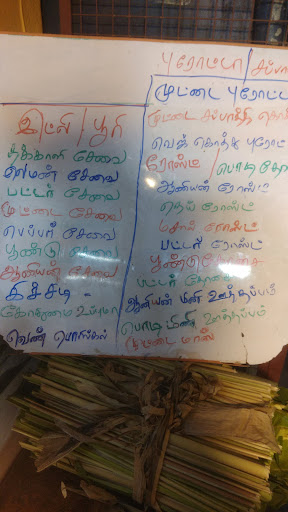 இட்லி / பூரி
தக்காளி சேவை
லெமன் சேவை
பட்டர் சேவை
முட்டை சேவை
பெப்பர் சேவை
பூண்டு சேவை
ஆனியன் சேவை
கிச்சடி
கோதுமை உப்புமா
வெண் பொங்கல்
புரோட்டா / சப்பா
முட்டை புரோட்ட
முட்டை சப்பாத்தி கொ
வெஜ் கொத்து புரோட்
ரோஸ்ட் / பொடி தோ
ஆனியன் ரோஸ்ட்
நெய் ரோஸ்ட்
மசால் ரோஸ்ட்
பட்டர் ரோஸ்ட்
பூண்டு தோசை
பட்டர் தோசை
ஆனியன் மினி ஊத்தப்பம்
பொடி மினி ஊத்தப்பம்
முட்டை மாஸ்